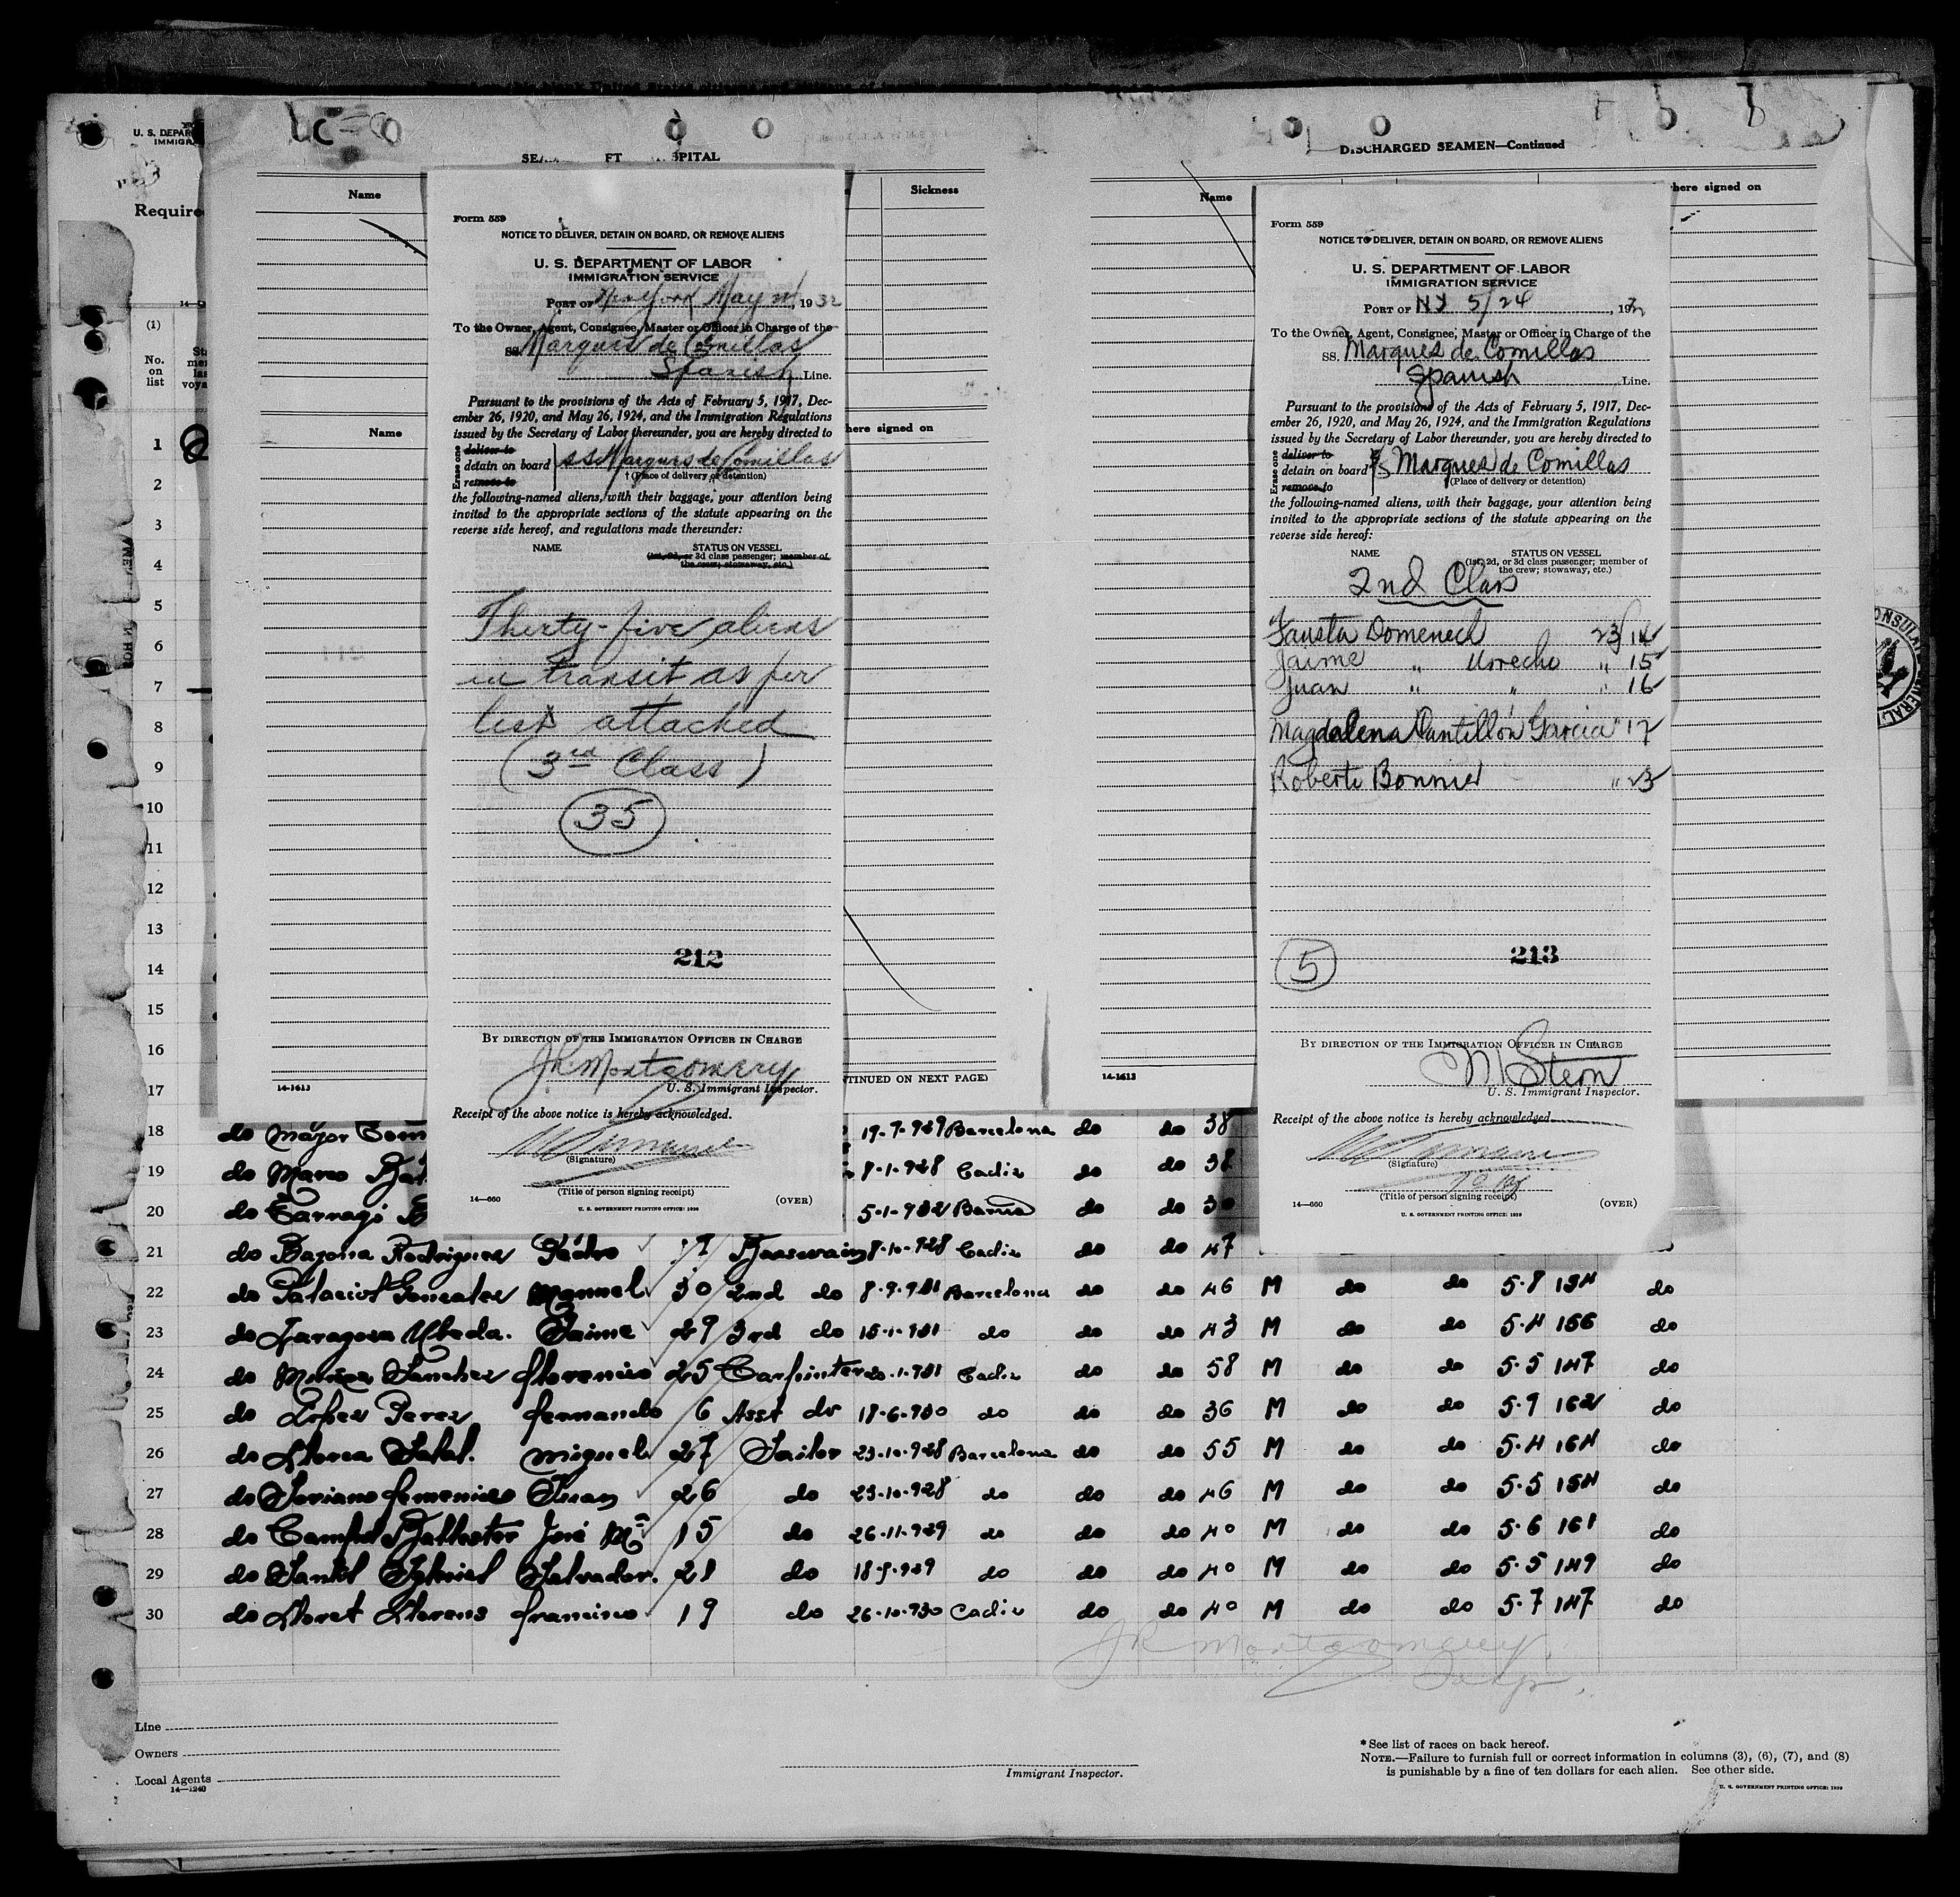 SEA FT SPITAL
Name
Sickness
Name
here signed on
14-1613
(CONTINUED ON NEXT PAGE)
Form 559
NOTICE TO DELIVER, DETAIN ON BOARD, OR REMOVE ALIENS
U. S. DEPARTMENT OF LABOR
IMMIGRATION SERVICE
PORT OF New York May 24, 1932
To the Owner, Agent, Consignee, Master or Officer in Charge of the
SS. Marques de Comillas
Spanish Line.
Pursuant to the provisions of the Acts of February 5, 1917, Dec-
ember 26, 1920, and May 26, 1924, and the Immigration Regulations
issued by the Secretary of Labor thereunder, you are hereby directed to
Erase one
deliver to
detain on board SS Marques de Comillas
remove to
† (Place of delivery or detention)
the following-named aliens, with their baggage, your attention being
invited to the appropriate sections of the statute appearing on the
reverse side hereof, and regulations made thereunder:
NAME STATUS ON VESSEL
(1st, 2d, or 3d class passenger; member of
the crew; stowaway, etc.)
Thirty-five aliens
in transit as per
list attached
(3rd Class)
35
212
BY DIRECTION OF THE IMMIGRATION OFFICER IN CHARGE
JR Montgomery
U. S. Immigrant Inspector.
Receipt of the above notice is hereby acknowledged.
(Signature)
(Title of person signing receipt)
14—660 (OVER)
U. S. GOVERNMENT PRINTING OFFICE: 1930
DISCHARGED SEAMEN—Continued
Name
here signed on
14-1613
Form 559
NOTICE TO DELIVER, DETAIN ON BOARD, OR REMOVE ALIENS
U. S. DEPARTMENT OF LABOR
IMMIGRATION SERVICE
PORT OF NY 5/24, 1932
To the Owner, Agent, Consignee, Master or Officer in Charge of the
SS. Marques de Comillas
Spanish Line.
Pursuant to the provisions of the Acts of February 5, 1917, Dec-
ember 26, 1920, and May 26, 1924, and the Immigration Regulations
issued by the Secretary of Labor thereunder, you are hereby directed to
Erase one
deliver to
detain on board SS Marques de Comillas
remove to
(Place of delivery or detention)
the following-named aliens, with their baggage, your attention being
invited to the appropriate sections of the statute appearing on the
reverse side hereof:
NAME STATUS ON VESSEL
(1st, 2d, or 3d class passenger; member of
the crew; stowaway, etc.)
2nd Class
Fausta Domenech 23/14
Jaime " Urrecho " 15
Juan " " " 16
Magdalena Garcia " 17
Roberto Bonnier " 23
5
213
BY DIRECTION OF THE IMMIGRATION OFFICER IN CHARGE
M Stern
U. S. Immigrant Inspector.
Receipt of the above notice is hereby acknowledged.
(Signature)
(Title of person signing receipt)
14—660 (OVER)
U. S. GOVERNMENT PRINTING OFFICE: 1930
U. S. DEPAR
IMMIGRA
Require
(1)
No.
on
list
1
2
3
4
5
6
7
8
9
10
11
12
13
14
15
16
17
18 do Mayor 19-7-929 Barcelona do do 38
19 do Marco 7-1-928 Cadiz do do 38
20 do Tarragó 5-1-932 Barna do do 30
21 do Bazona Rodriguez Pedro 17 Boatswain 7-10-928 Cadiz do do 47
22 do Palaciot Gonzalez Manuel 30 2nd do 8-9-931 Barcelona do do 46 M do do 5-8 134 do
23 do Zaragoza Ubeda. Jaime 29 3rd do 15-1-931 do do do 43 M do do 5-4 156 do
24 do Muñoz Sanchez Florencio 25 Carpinter 20-1-931 Cadiz do do 58 M do do 5-5 147 do
25 do Lopez Perez Fernando 6 Asst do 17-6-930 do do do 36 M do do 5-7 162 do
26 do Llorca Miguel 27 Sailor 23-10-928 Barcelona do do 55 M do do 5-4 164 do
27 do Soriano Femenias Juan 26 do 23-10-928 do do do 46 M do do 5-5 154 do
28 do Ballester José Mª 15 do 26-11-929 do do do 40 M do do 5-6 161 do
29 do Salvador. 21 do 18-9-929 do do do 40 M do do 5-5 149 do
30 do Lloret Llorens Francisco 19 do 26-10-930 Cadiz do do 40 M do do 5-7 147 do
JR Montgomery
Insp.
Line
Owners
Local Agents
14—1240
Immigrant Inspector.
*See list of races on back hereof.
NOTE.—Failure to furnish full or correct information in columns (3), (6), (7), and (8)
is punishable by a fine of ten dollars for each alien. See other side.
U. S. GOVERNMENT PRINTING OFFICE: 1930